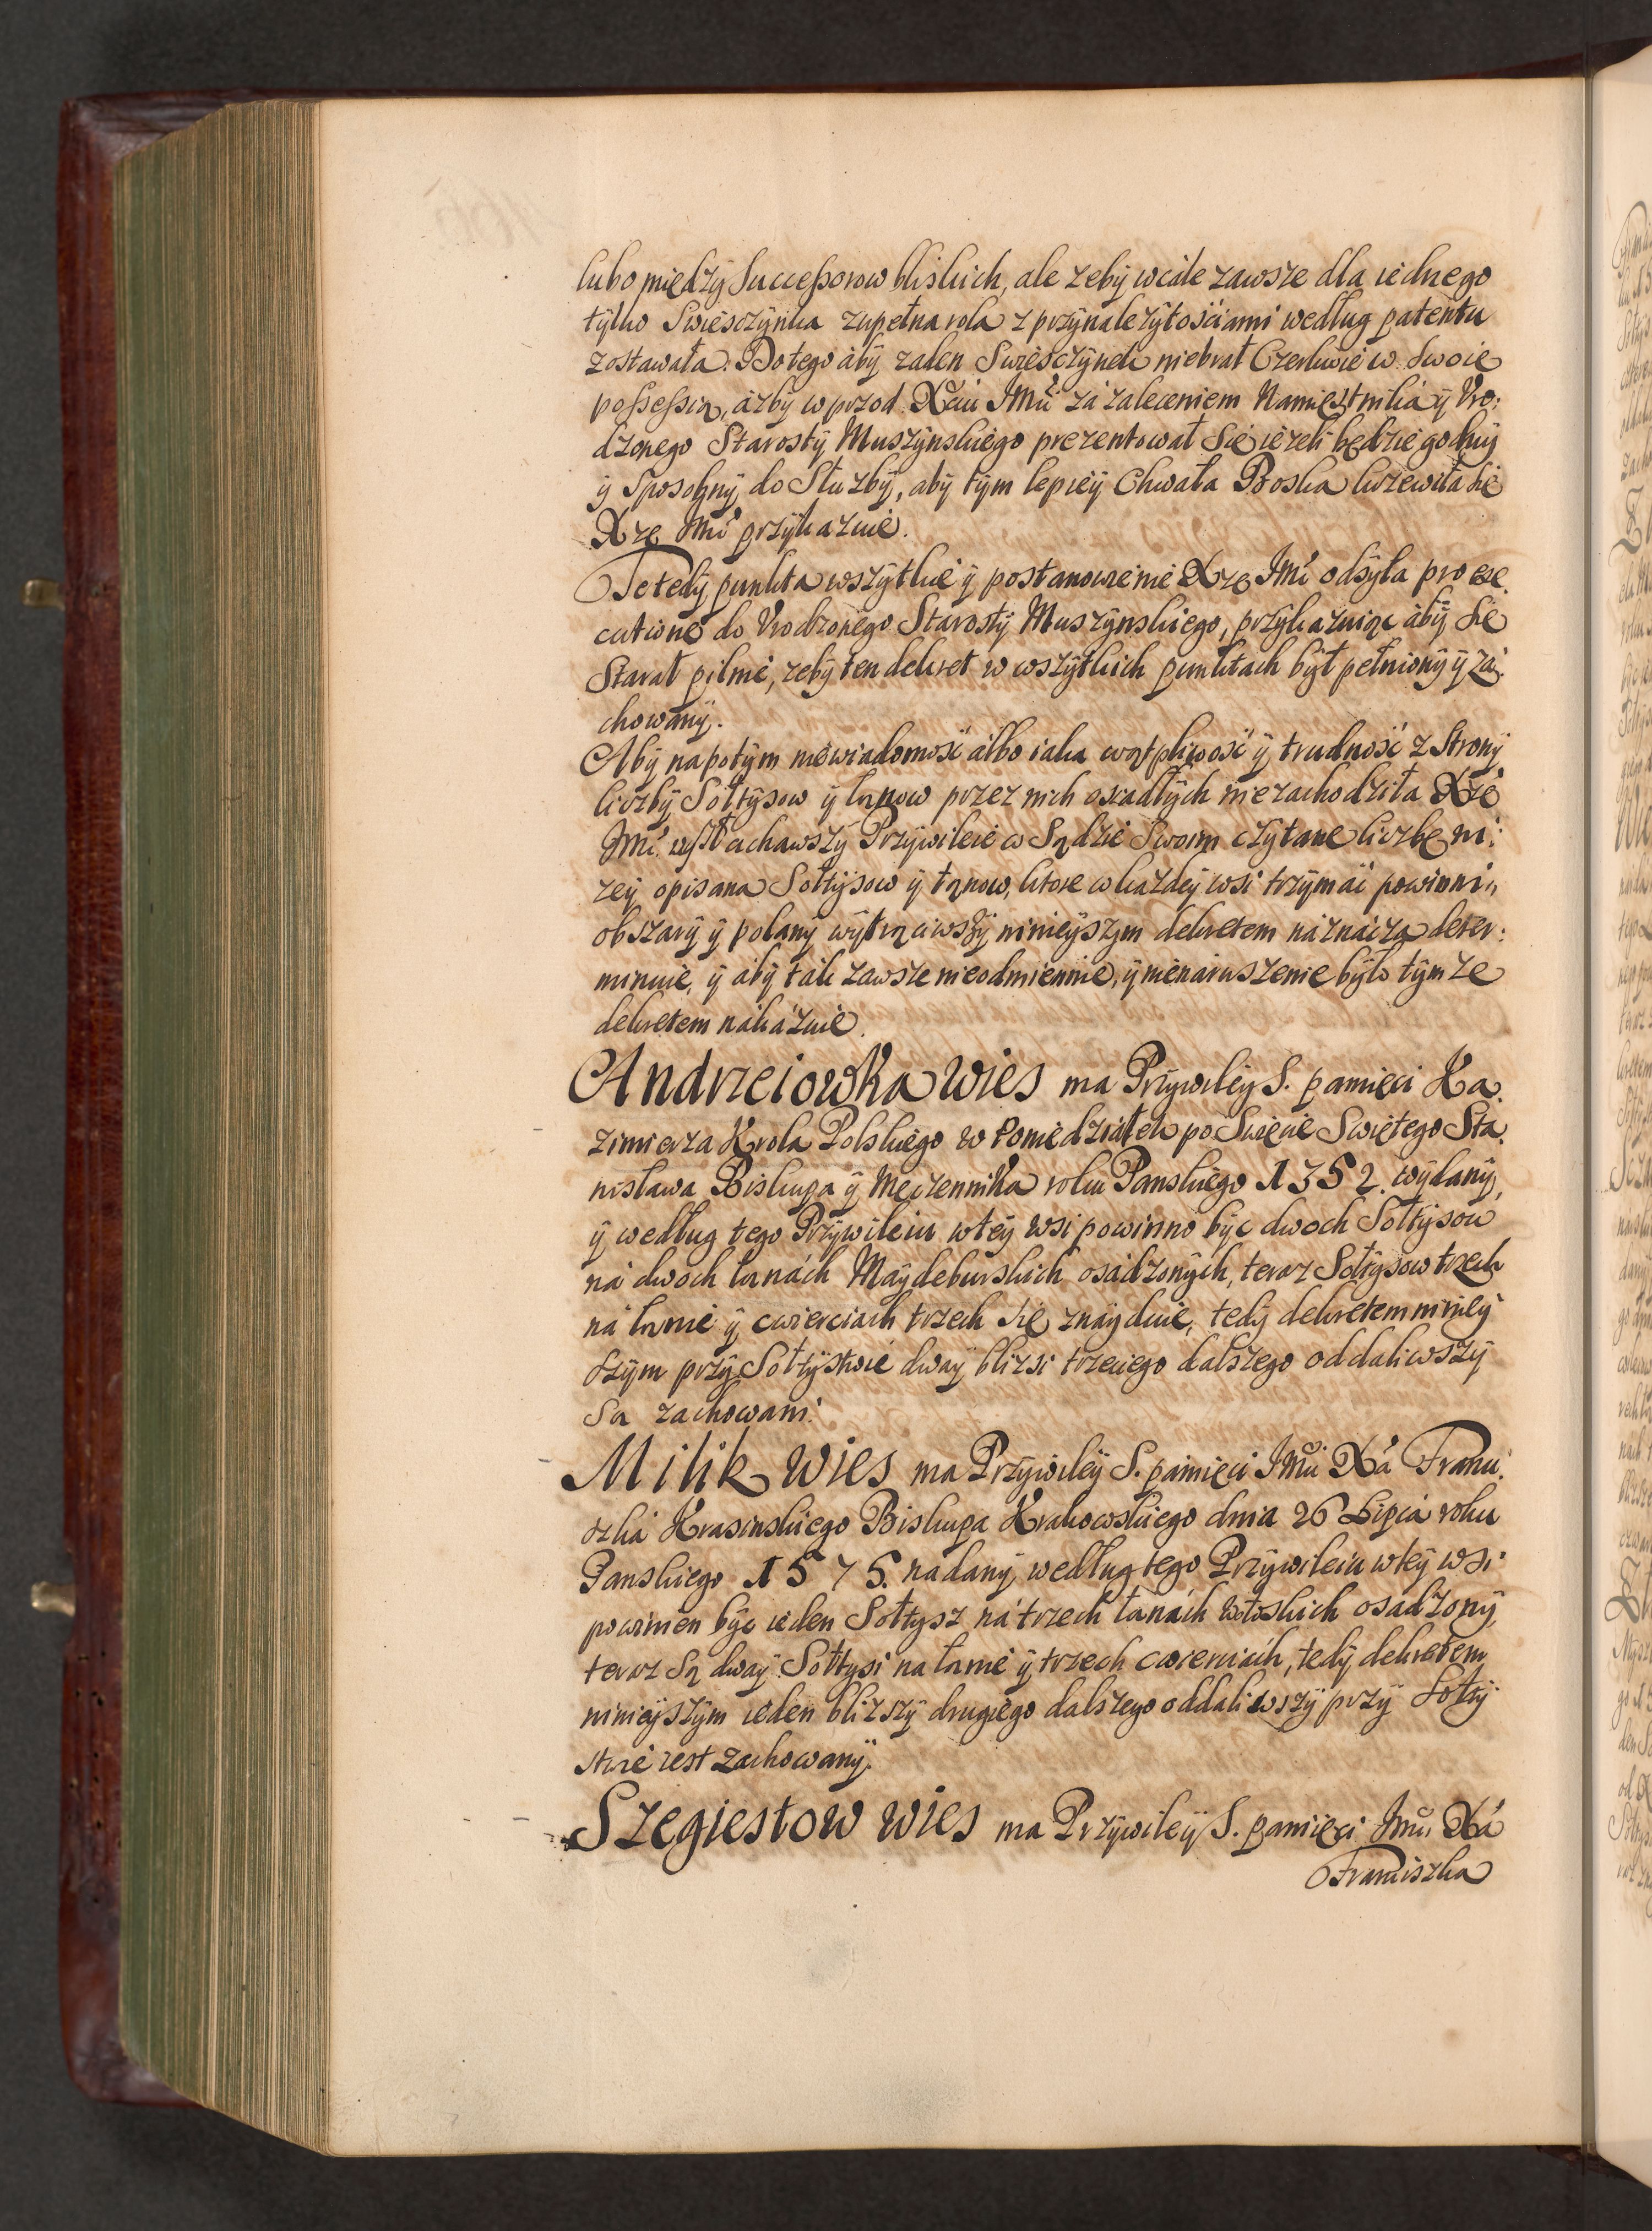 lubo między Successorow bliskich, ale zeby wcale zawsze dla iednego
tylko Swiesczynka zupełna rola z przynalezytosciami według patentu
zostawała. Do tego aby zaden Swiesczynek niebrał Czerkwie w Swoie
possessią, ázby wprzod Xciu JMći zá zaleceniem Namięstniká y Vro:
dzonego Starosty Muszynskiego prezentował Się iezeli będzie godny
y Sposobny do Słuzby, aby tym lepiey Chwała Boska krzewiła Się
Xze JMć przykazuie.
Te tedy punkta wszytkie y postanowienie Xze JMć odsyła pro exe.
cutione do Vrodzonego Starosty Muszynskiego, przykazuiąc aby Się
Starał pilnie, zeby ten dekret w wszytkich punktach był pełniony y za:
chowany.
Aby napotym niewiadomosć álbo iaka wątpliwosć y trudnosć z Strony
liczby Sołtysow y łanow przez nich osiadłych niezachodziła Xze
JMć wysłuchawszy Przywileie w Sądzie Swoim czytane liczbę ni:
zey opisana Sołtysow y łanow, ktore w kazdey wsi trzymáć powinni,
obszary y polany wytrąciwszy ninieyszym dekretem náznácza deter:
minuie, y aby ták zawsze nieodmiennie, y nienáruszenie było tymze
dekretem nákázuie.
Andrzeiowka wies ma Przywiley S. pamięci Ka.
zimierza Krola Polskiego w Poniedziałek po Swięcie Swiętego Sta.
nisława Biskupa y Męczennika roku Panskiego 1352. wydany,
y według tego Przywileiu wtey wsi powinno byc dwoch Sołtysow
ná dwoch łanách Maydeburskich osádzonych, teraz Sołtysow trzech
ná łanie y cwierciach trzech się znayduie, tedy dekretem niniey
szym przy Sołtystwie dway blizsi trzeciego dalszego oddaliwszy
Są zachowani.
Milik wies ma Przywiley S. pamięci JMći Xá Franci.
szká Krasinskiego Biskupa Krakowskiego dnia 26 Lipca roku
Panskiego 1575. nadany, według tego Przywileiu wtey wsi
powinien byc ieden Sołtysz ná trzech łanách Wołoskich osadzony,
teraz Są dway Sołtysi na łanie y trzech cwierciách, tedy dekretem
ninieyszym ieden blizszy drugiego dalszego oddaliwszy przy Sołty
stwie iest zachowany.
Szegiestow wies ma Przywiley S. pamięci Jmći Xá
Franciszka